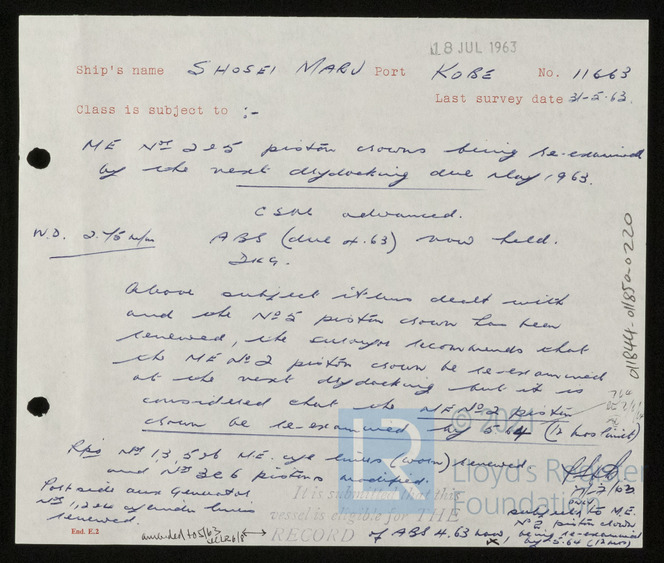 18 JUL 1963
Ship's name SHOSEI MARU Port KOBE No. 11663
Last survey date 31-5-63.
Class is subject to :-
ME Nos 2&5 piston crowns being re-examined
by the next drydocking due May 1963.
CSM advanced.
W.D. 2.75 m/m ABS (due 4.63) now held.
Dkg.
Above subject items dealt with
and the No 5 piston crown has been
renewed, the surveyor recommends that
the ME No 2 piston crown be re-examined
at the next drydocking but it is
considered that the ME No 2 piston
crown be re-examined by 5.64 (12 mos limit)
Rps Nos 1,3,5&6 M.E. cyl liners (worn) renewed
and Nos 3&6 pistons modified.
Port side aux Generator
Nos 1,2&4 cylinder liners
renewed.
It is submitted that this
vessel is eligible for THE
RECORD of ABS 4.63 now,
subject to M.E.
No 2 piston crown
being re-examined
by 5.64 (12 mos)
End. E.2
amended to 5/63
011844-011850-0220
© 2021
Lloyd's Register
Foundation